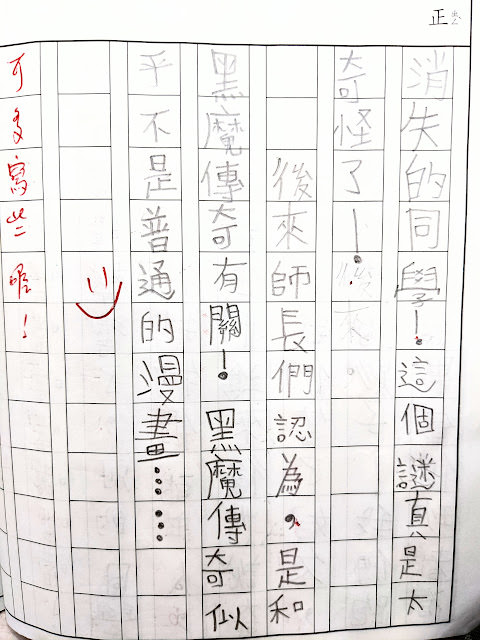 正
消失的同學！這個謎真是太
奇怪了！
後來師長們認為，是和
黑魔傳奇有關！黑魔傳奇似
乎不是普通的漫畫……
可多寫些喔！